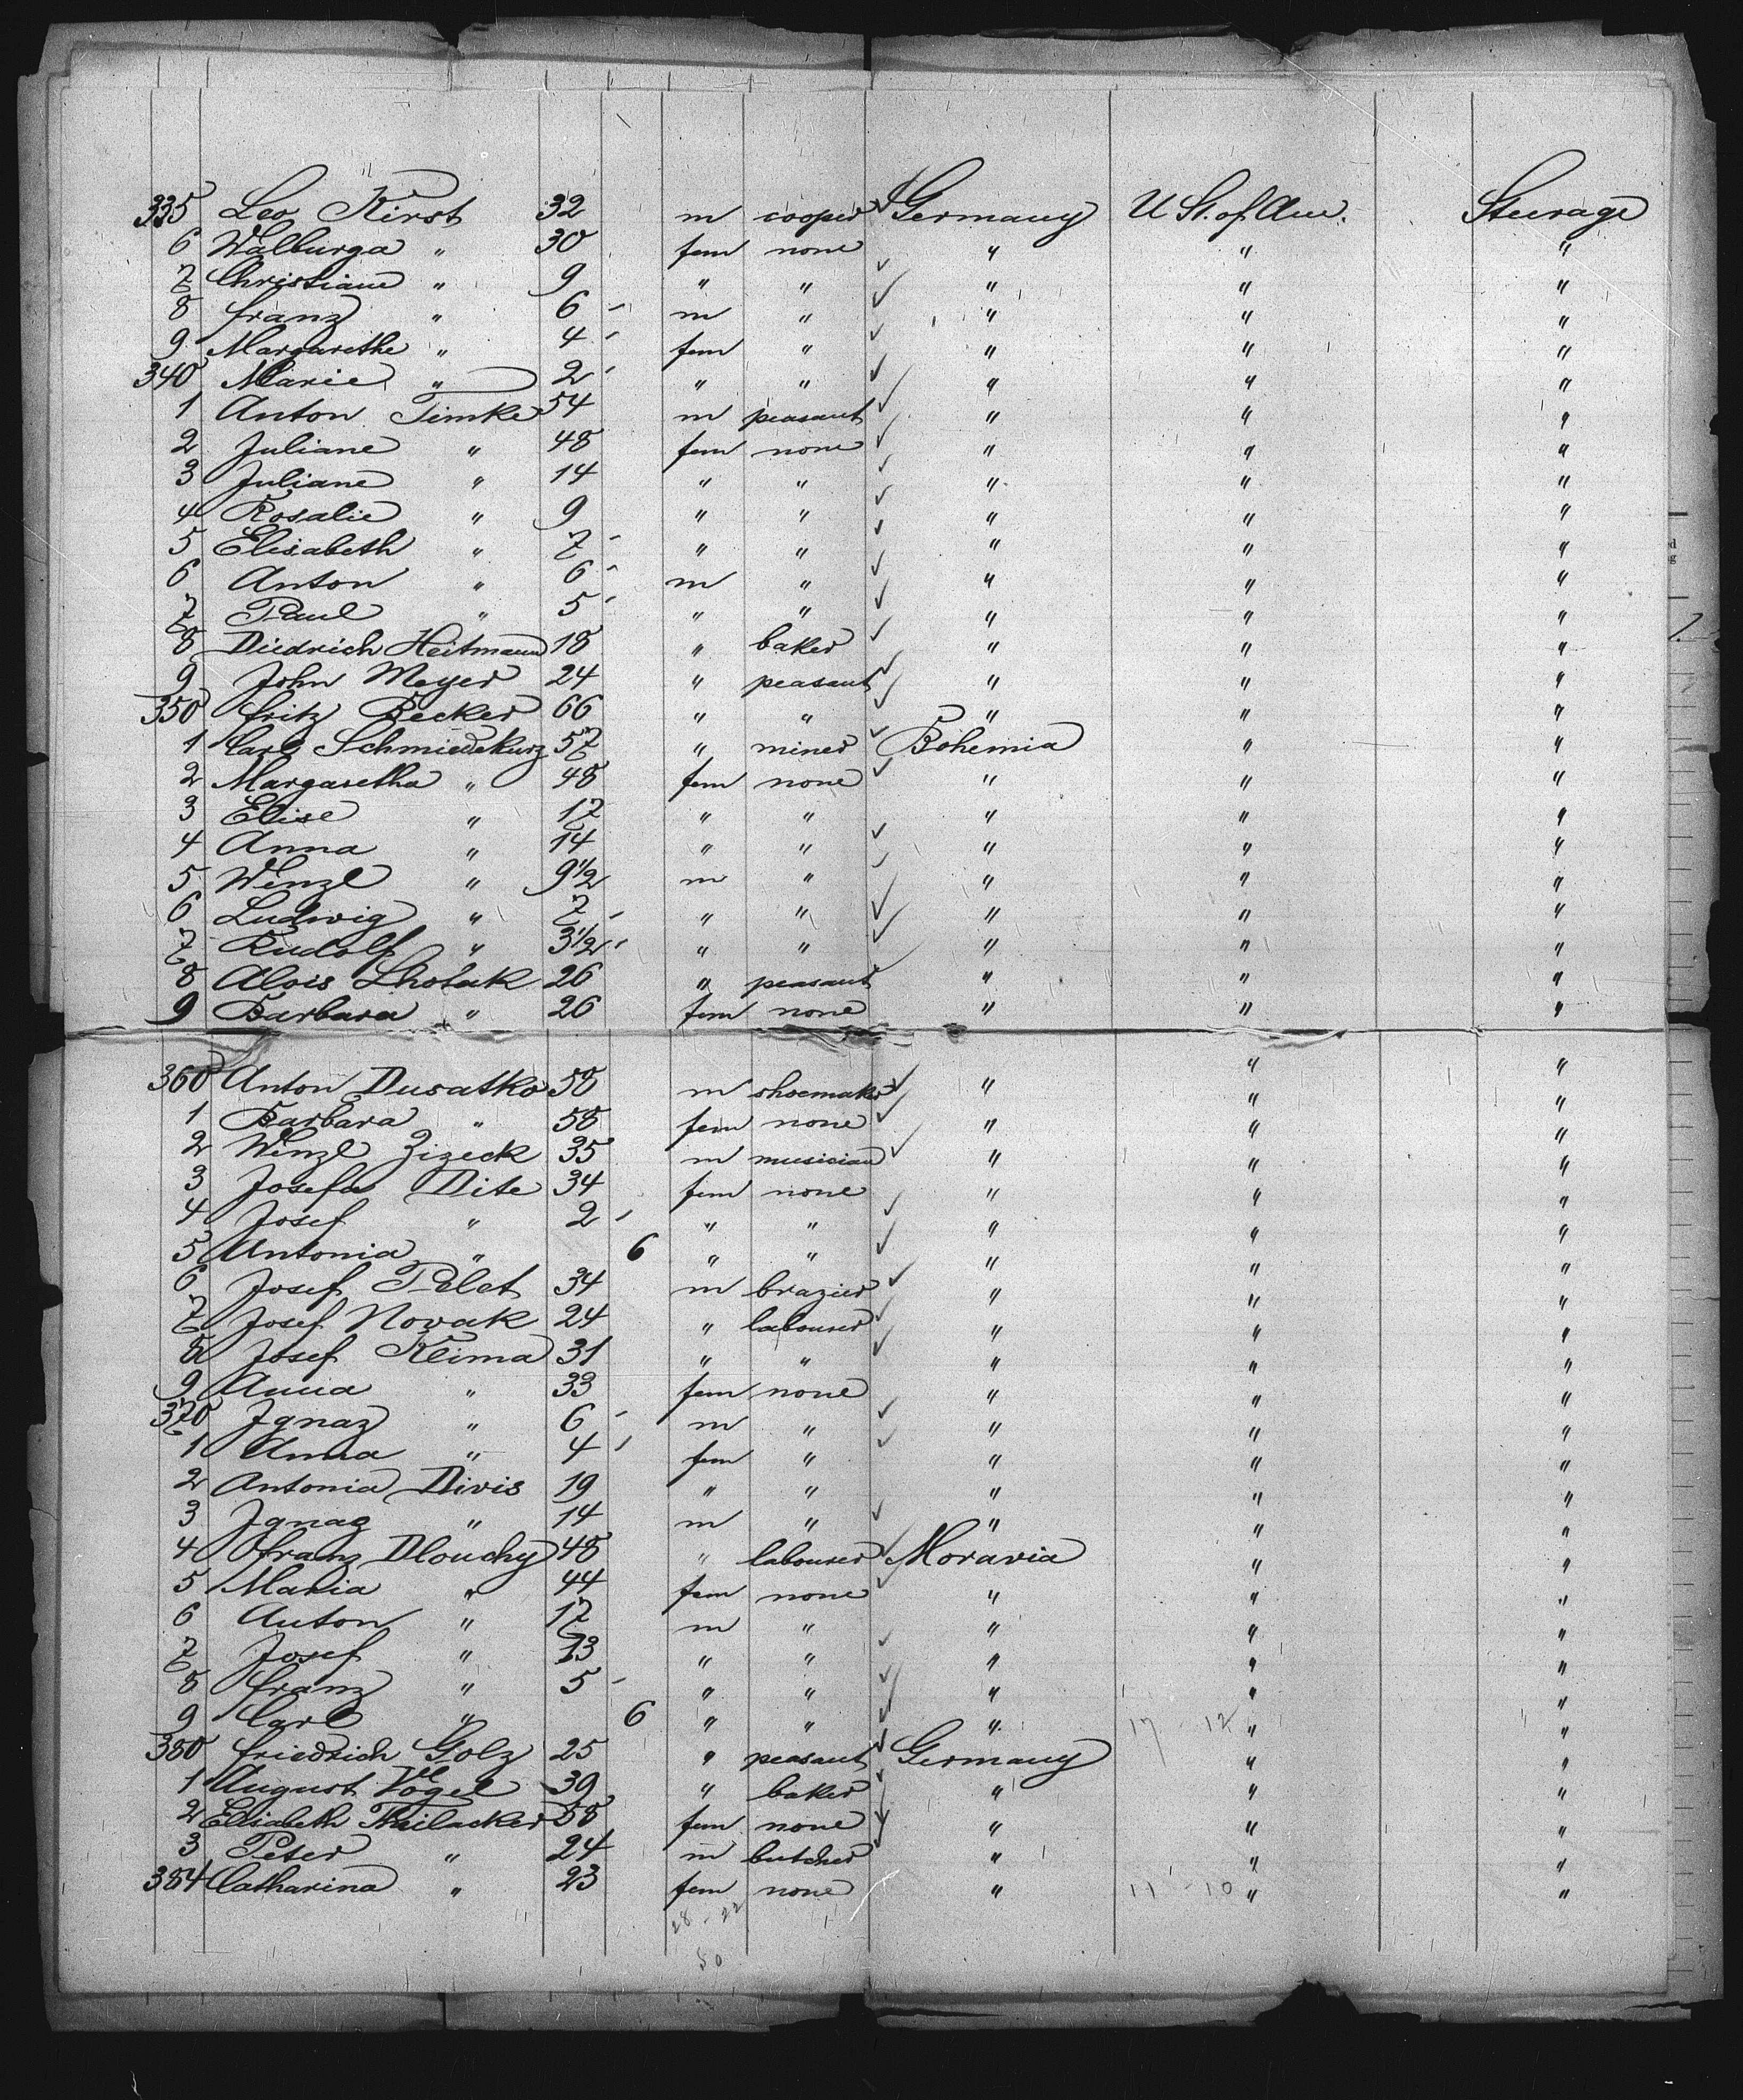 335 Leo Kirst 32 m cooper Germany U St. of Am. Steerage
6 Walburga " 30 fem none " " "
7 Christiane " 9 " " " " "
8 Franz " 6 m " " " "
9 Margarethe " 4 fem " " " "
340 Marie " 2 " " " " "
1 Anton Timke 54 m peasant " " "
2 Juliane " 48 fem none " " "
3 Juliane " 14 " " " " "
4 Rosalie " 9 " " " " "
5 Elisabeth " 7 " " " " "
6 Anton " 6 m " " " "
7 Paul " 5 " " " " "
8 Diedrich Heitmann 18 " baker " " "
9 John Meyer 24 " peasant " " "
350 Fritz Becker 66 " " " " "
1 Carl Schmiedekurz 57 " miner Bohemia " "
2 Margaretha " 48 fem none " " "
3 Elise " 17 " " " " "
4 Anna " 14 " " " " "
5 Wenzl " 9 1/2 m " " " "
6 Ludwig " 7 " " " " "
7 Rudolf " 3 1/2 " " " " "
8 Alois Lhotak 26 " peasant " " "
9 Barbara " 26 fem none " " "
360 Anton Dusatko 58 m shoemaker " " "
1 Barbara " 58 fem none " " "
2 Wenzl Zizeck 35 m musician " " "
3 Josefa Dite 34 fem none " " "
4 Josef " 2 " " " " "
5 Antonia " 6 " " " " "
6 Josef Pelet 34 m brazier " " "
7 Josef Novak 24 " labourer " " "
8 Josef Klima 31 " " " " "
9 Anna " 33 fem none " " "
370 Ignaz " 6 m " " " "
1 Anna " 4 fem " " " "
2 Antonia Divis 19 " " " " "
3 Ignaz " 14 m " " " "
4 Franz Dlouchy 48 " labourer Moravia " "
5 Maria " 44 fem none " " "
6 Anton " 17 m " " " "
7 Josef " 13 " " " " "
8 Franz " 5 " " " " "
9 Carl " 6 " " " 17 - 12 " "
380 Friedrich Golz 25 " peasant Germany " "
1 August Vogel 39 " baker " " "
2 Elisabeth Theilacker 58 fem none " " "
3 Peter " 24 m butcher " " "
384 Catharina " 23 fem none " 11 - 10 " "
28 - 22
50